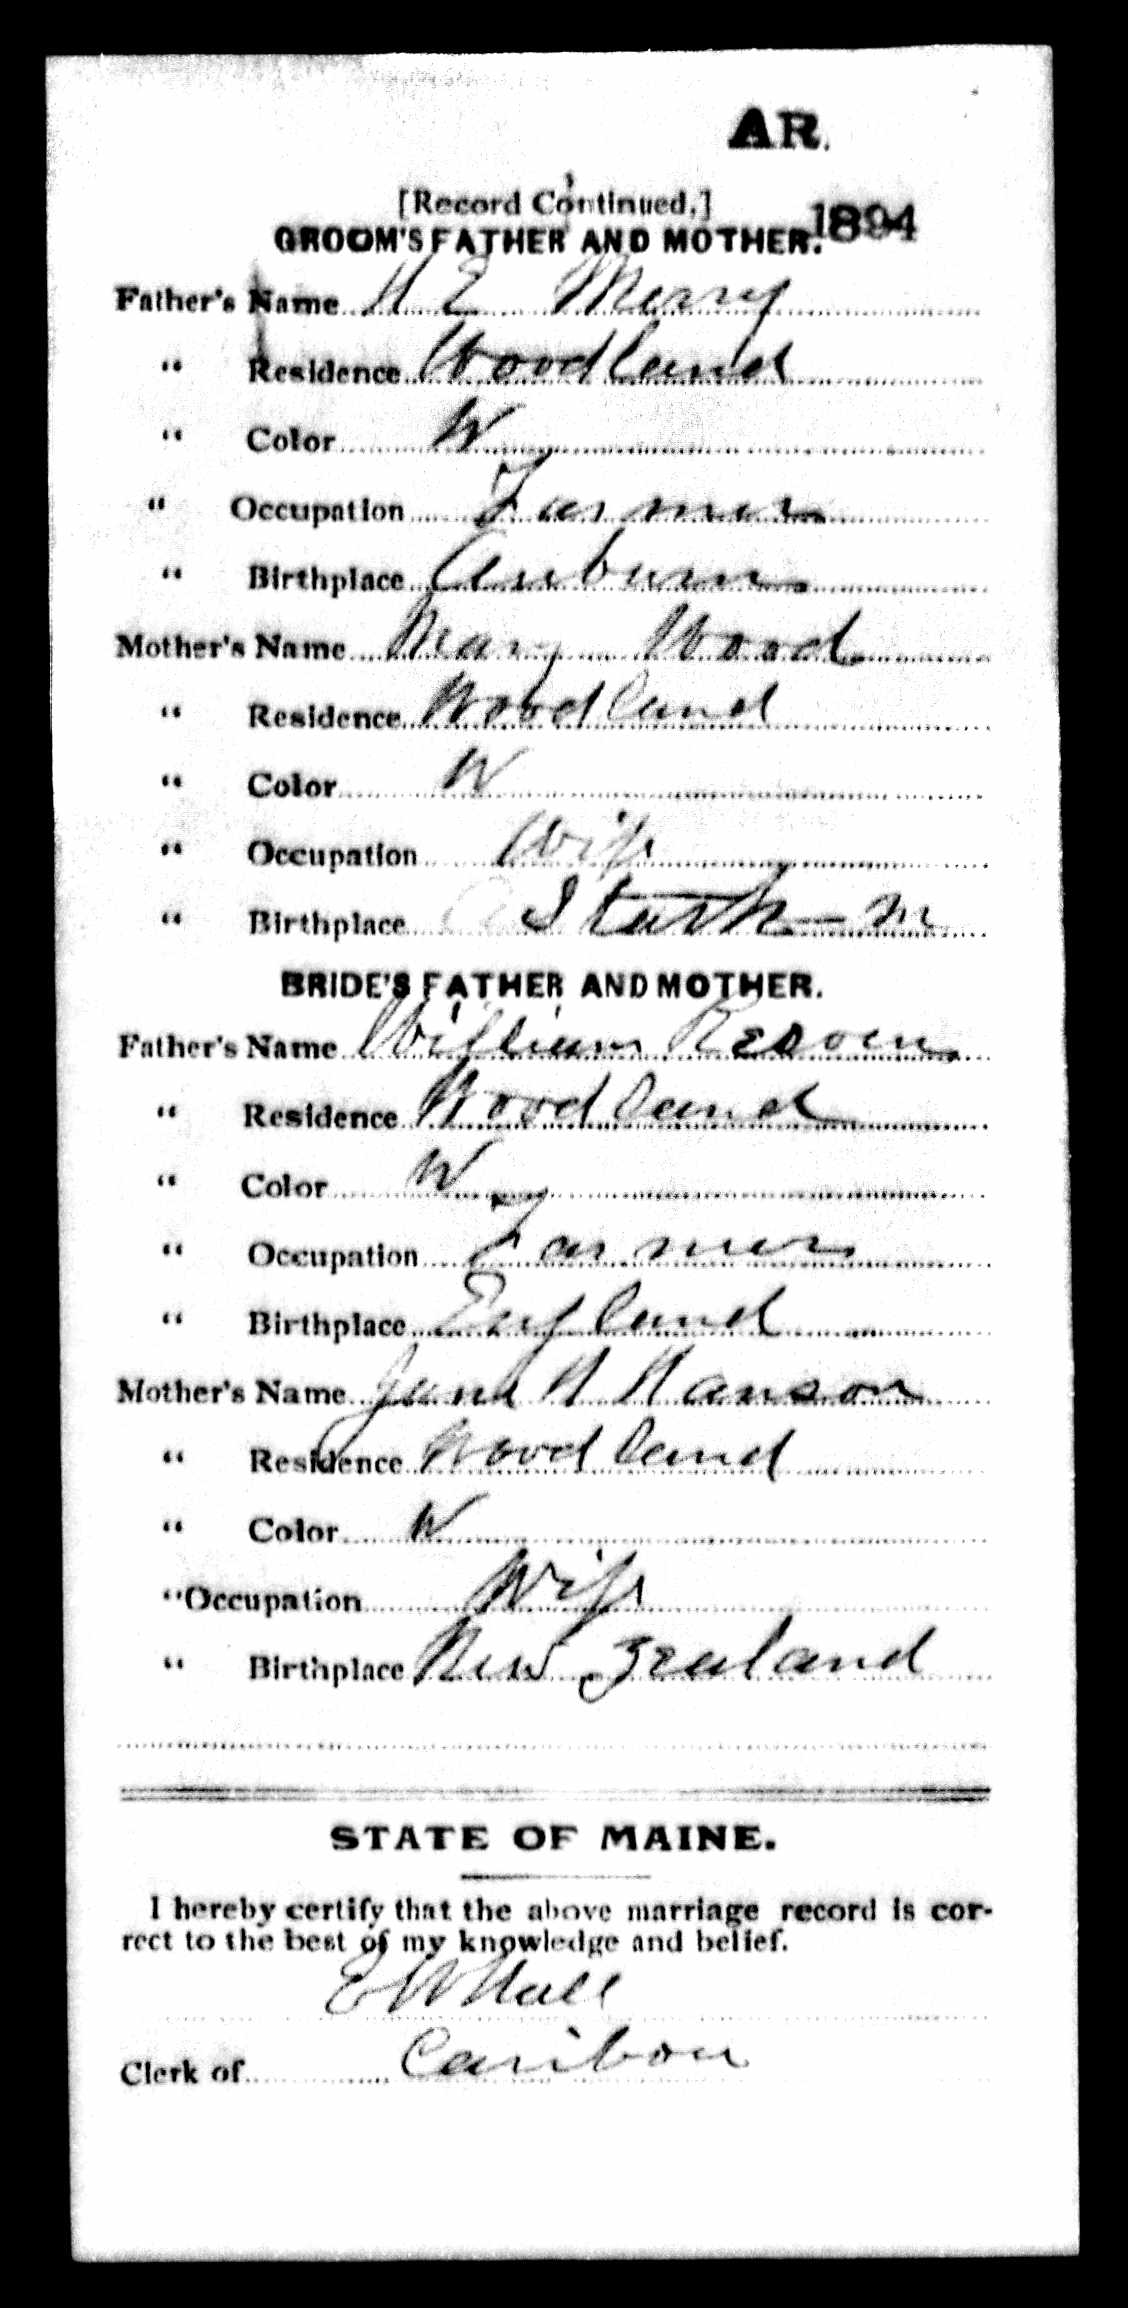 AR.
[Record Continued.] 1894
GROOM'S FATHER AND MOTHER.
Father's Name H E Merry
" Residence Woodland
" Color W
" Occupation Farmer
" Birthplace Auburn
Mother's Name Mary Wood
" Residence Woodland
" Color W
" Occupation Wife
" Birthplace Stark - M
BRIDE'S FATHER AND MOTHER.
Father's Name William
" Residence Woodland
" Color W
" Occupation Farmer
" Birthplace England
Mother's Name Jane H Hanson
" Residence Woodland
" Color W
" Occupation Wife
" Birthplace New Zealand
STATE OF MAINE.
I hereby certify that the above marriage record is cor-
rect to the best of my knowledge and belief.
E W Hall
Clerk of Caribou